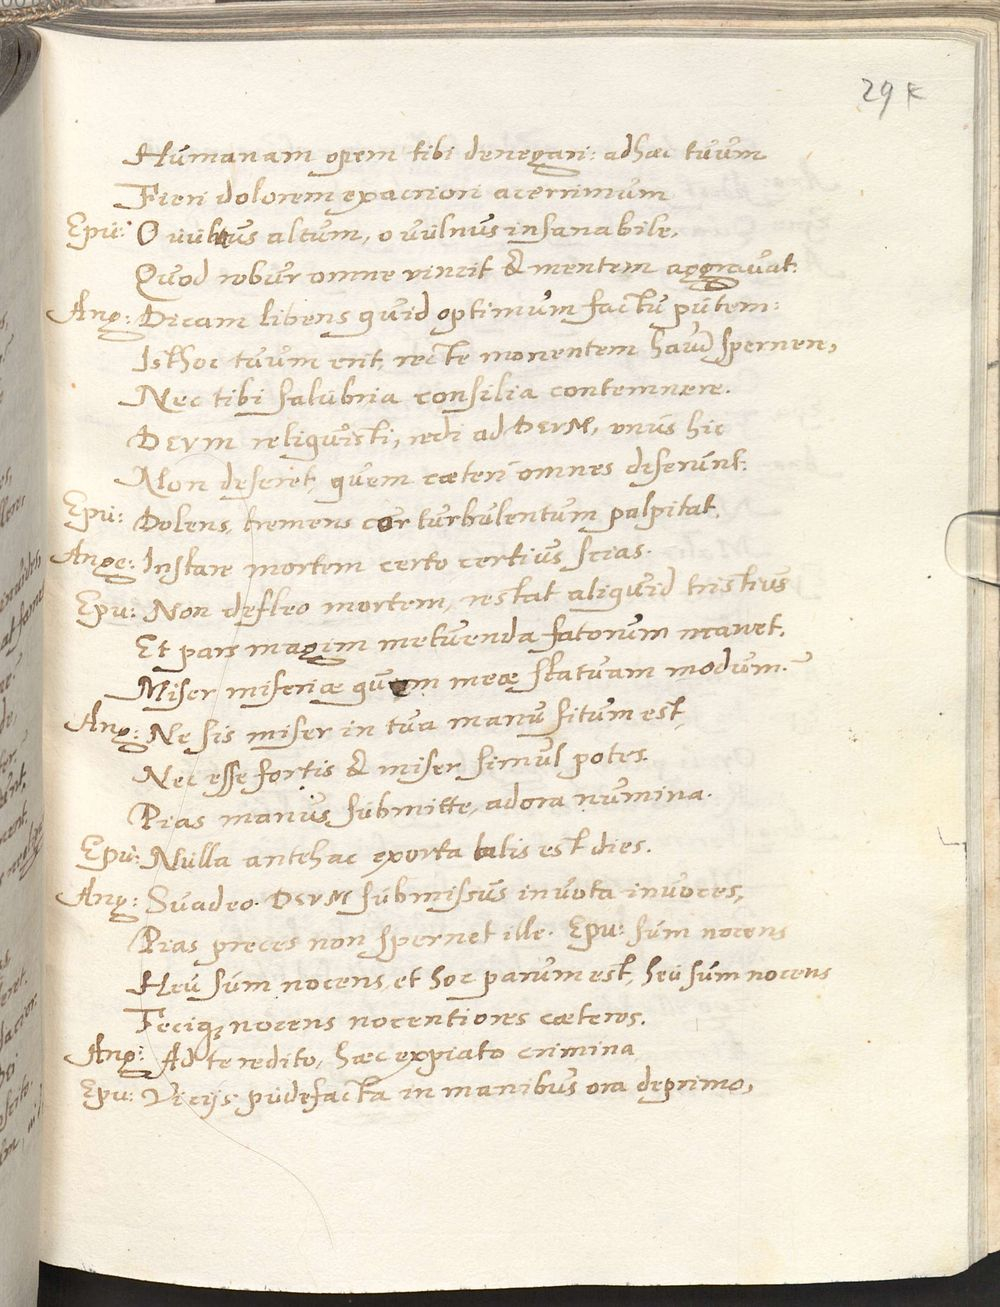 29 r
Humanam opem tibi denegari: adhæc tuum
Fieri dolorem ex acriori acerrimum
Epu: O uultus altum, o uulnus insanabile,
Quod robur omne vincit & mentem aggrauat.
Ang: Dicam libens quid optimum factu putem:
Isthoc tuum erit, recte monentem haud spernere,
Nec tibi salubria consilia contemnere.
DEUM reliquisti, redi ad DEUM, unus hic
Non deseret, quem cæteri omnes deserunt.
Epu: Dolens, tremens cor turbulentum palpitat,
Ange: Instare mortem certo certius scias.
Epu: Non defleo mortem, restat aliquid tristius
Et pars magim metuenda fatorum manet.
Miser miseriæ quem meæ statuam modum.
Ang: Ne sis miser in tua manu situm est,
Nec esse fortis & miser simul potes.
Pias manus submitte, adora numina.
Epu: Nulla antehac exorta talis est dies.
Ang: Suadeo. DEUM submissus in uota inuoces,
Pias preces non spernet ille. Epu: sum nocens
Heu sum nocens, et hoc parum est, heu sum nocens
Feciq; nocens nocentiores cæteros.
Ang: Ad te redito, hæc expiato crimina
Epu: Vitijs pudefacta in manibus ora deprimo,